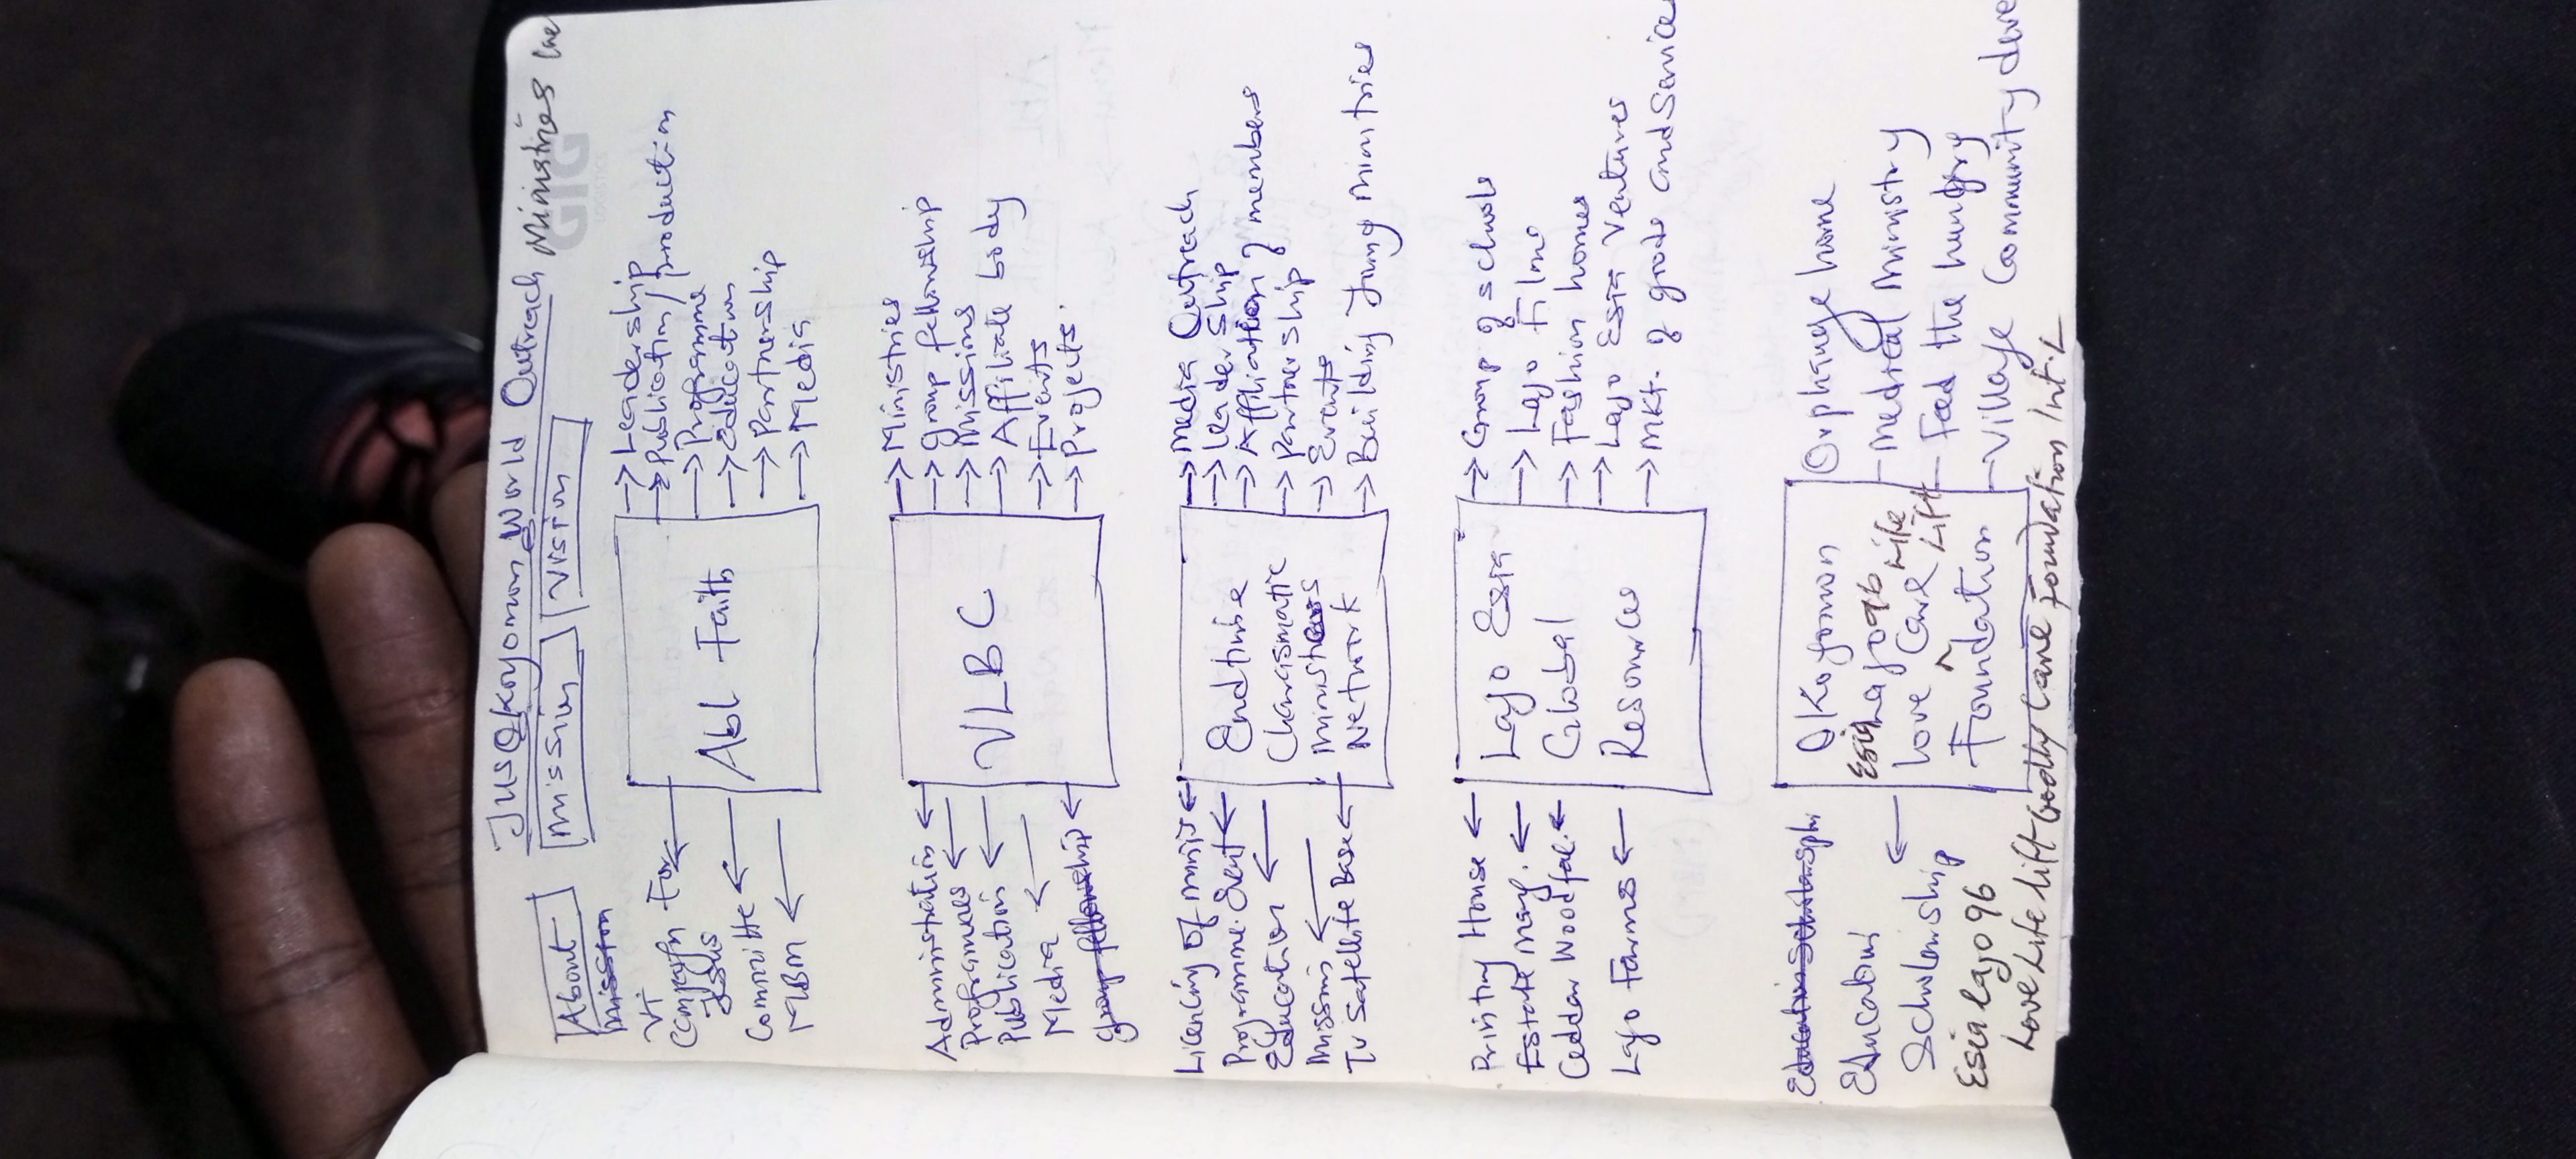 JusOkoyomon World Outreach Ministries Inc
GIG
LOGISTICS
About Mission Vision
Mission
Vi
Campaign For
Jesus
Committe
MBM
Abl Faith
Leadership
Publication/production
Programme
Education
Partnership
Media
Administration
Programmes
Publication
Media
group fellowship
VLBC
Ministries
group fellowship
Missions
Affiliate body
Events
Projects
Licencing of
Programme. Event
Education
Missins
Tv Satellite Base
Endtime
Charismatic
Network
Media Outreach
Leadership
Affiliation of members
Partnership
Events
Building Mintries
Printing House
Estate Mang.
Ceddar Woodfac.
Lajo Farms
Lajo Esia
Global
Resources
Group of schools
Lajo Films
Fashion homes
Lajo Esia Ventures
Mkt. of goods and Service
Education
Scholarship
Esia lajo 96
Okoyomon
Esia Lajo 96
love Care Life
Lift
Foundation
Orphange home
Medical Ministry
Feed the hungry
Village Community deve
Love Life lift Godly Care Foundation Int.L